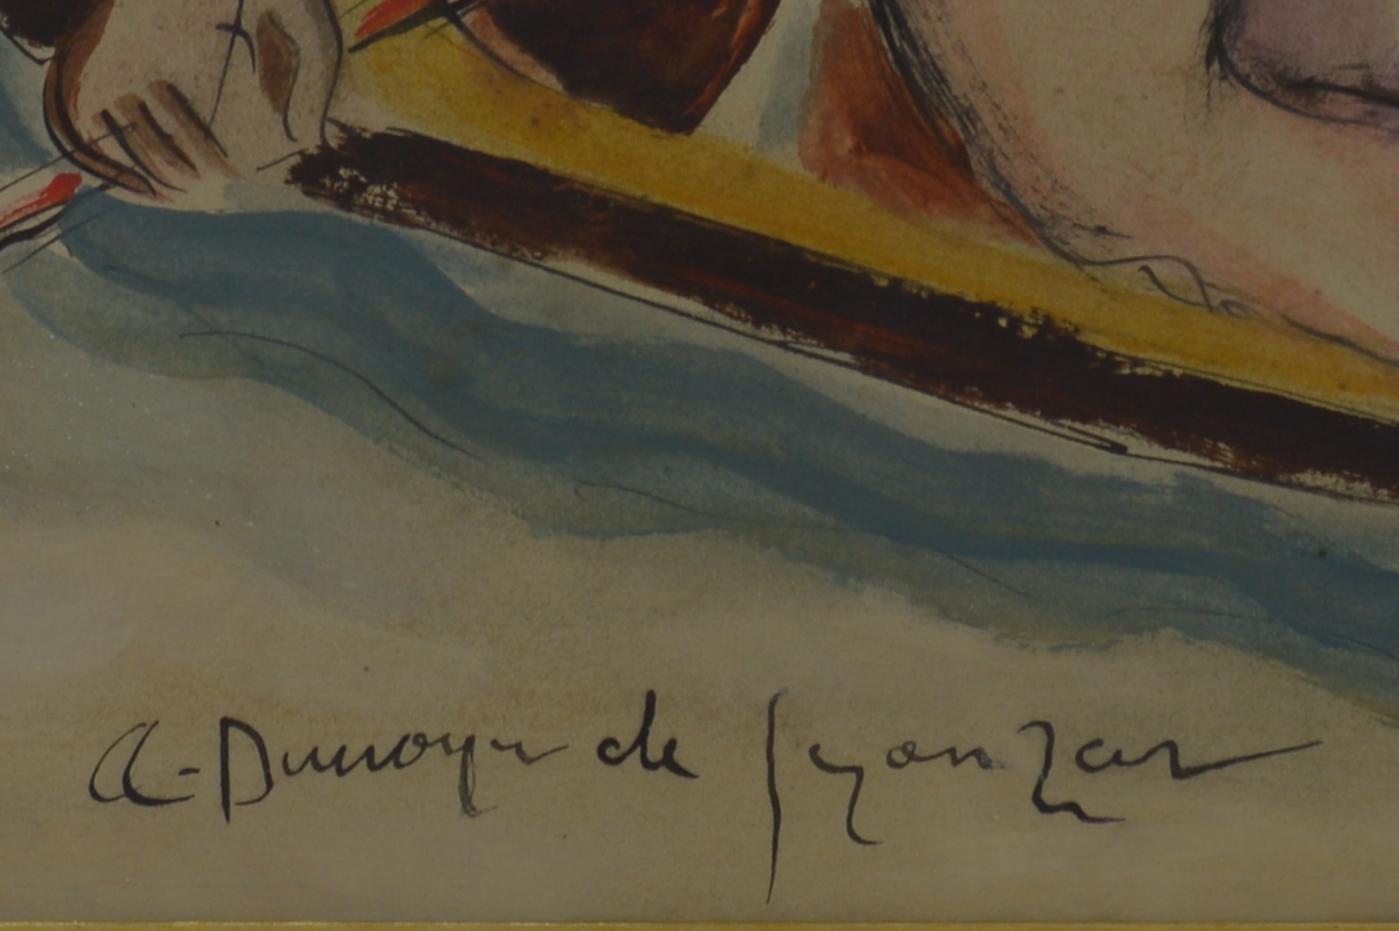 A-Dunoyer de Segonzac